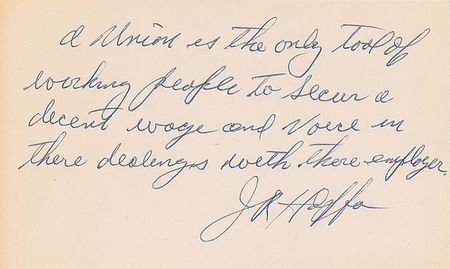 a Union is the only tool of
working people to secur a
decent wage and voice in
there dealings with there employer.
J R Hoffa